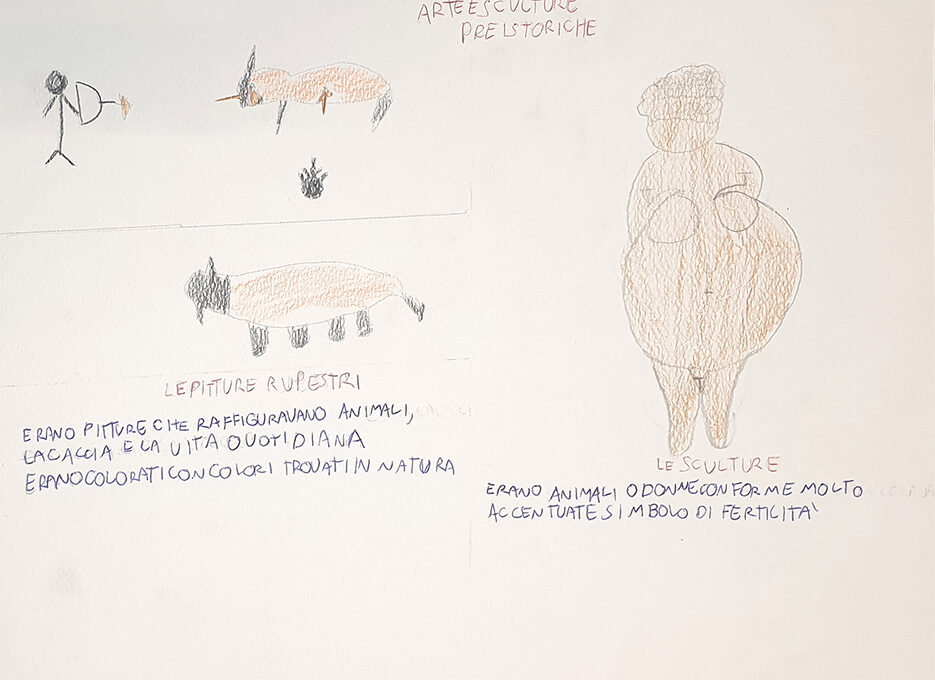 ARTE E SCULTURE
PREISTORICHE
LE PITTURE RUPESTRI
ERANO PITTURE CHE RAFFIGURAVANO ANIMALI,
LA CACCIA E LA VITA QUOTIDIANA
ERANO COLORATI CON COLORI TROVATI IN NATURA
LE SCULTURE
ERANO ANIMALI O DONNE CON FORME MOLTO
ACCENTUATE SIMBOLO DI FERTICITÀ